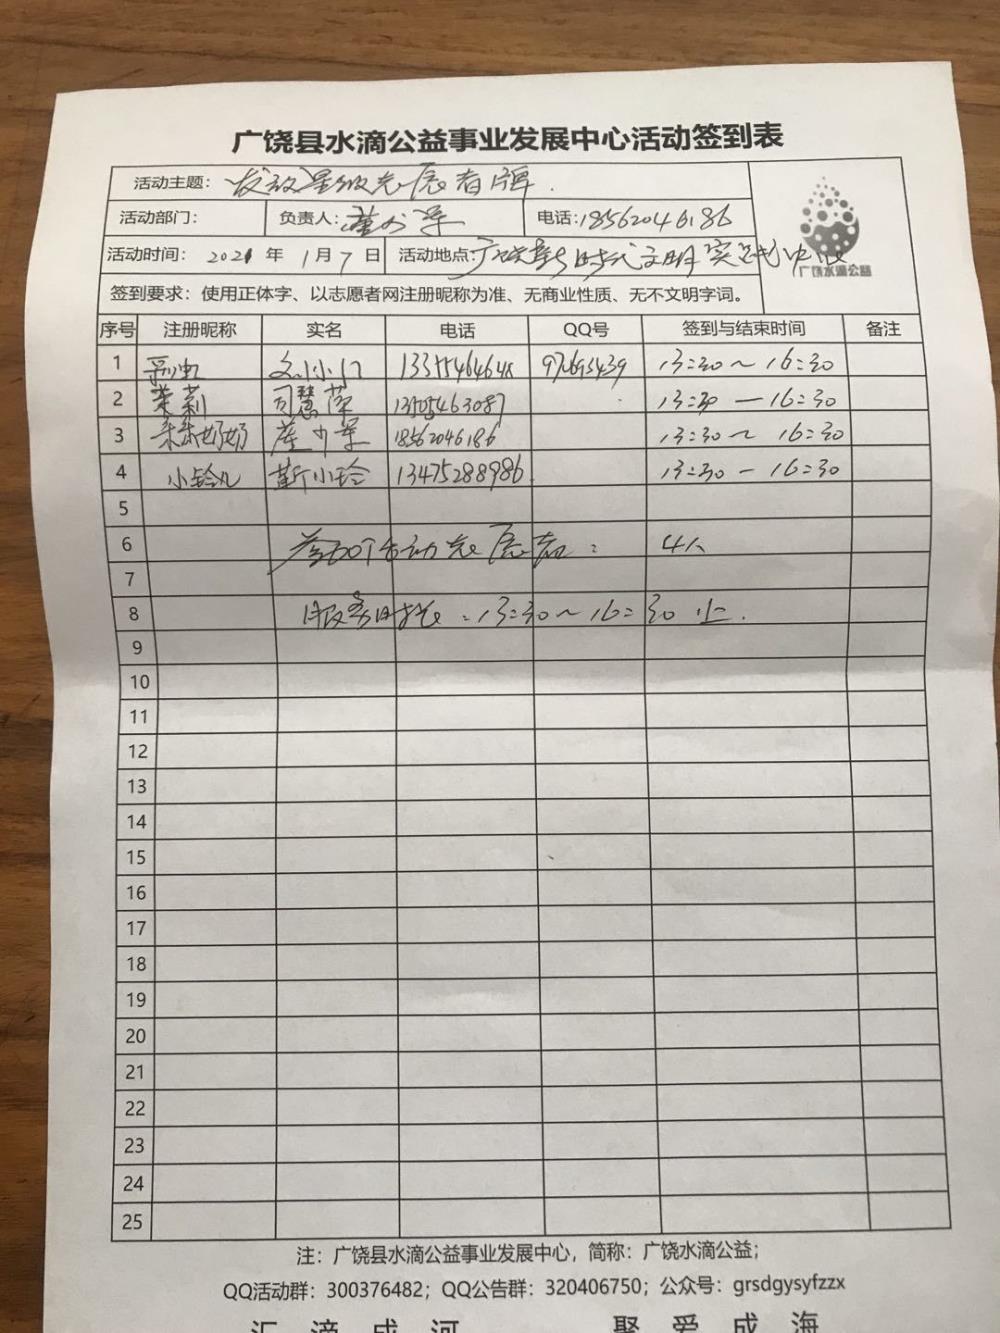 广饶县水滴公益事业发展中心活动签到表
活动主题: 发放星级志愿者牌.
活动部门: 负责人: 电话:18562046186
活动时间: 2021 年 1 月 7 日 活动地点: 广饶县新时代文明实践中心
广饶水滴公益
签到要求：使用正体字、以志愿者网注册昵称为准、无商业性质、无不文明字词。
序号 注册昵称 实名 电话 QQ号 签到与结束时间 备注
1 彩虹 13:30～16:30
2 茉莉 司慧荣 13505463087 13:30—16:30
3 奶奶 18562046186 13:30～16:30
4 小铃儿 靳小玲 13475288986 13:30—16:30
5
6 参加活动志愿者： 4人
7
8 服务时长：13:30～16:30止.
9
10
11
12
13
14
15
16
17
18
19
20
21
22
23
24
25
注：广饶县水滴公益事业发展中心，简称：广饶水滴公益；
QQ活动群：300376482；QQ公告群：320406750；公众号：grsdgysyfzzx
汇滴成河 聚爱成海